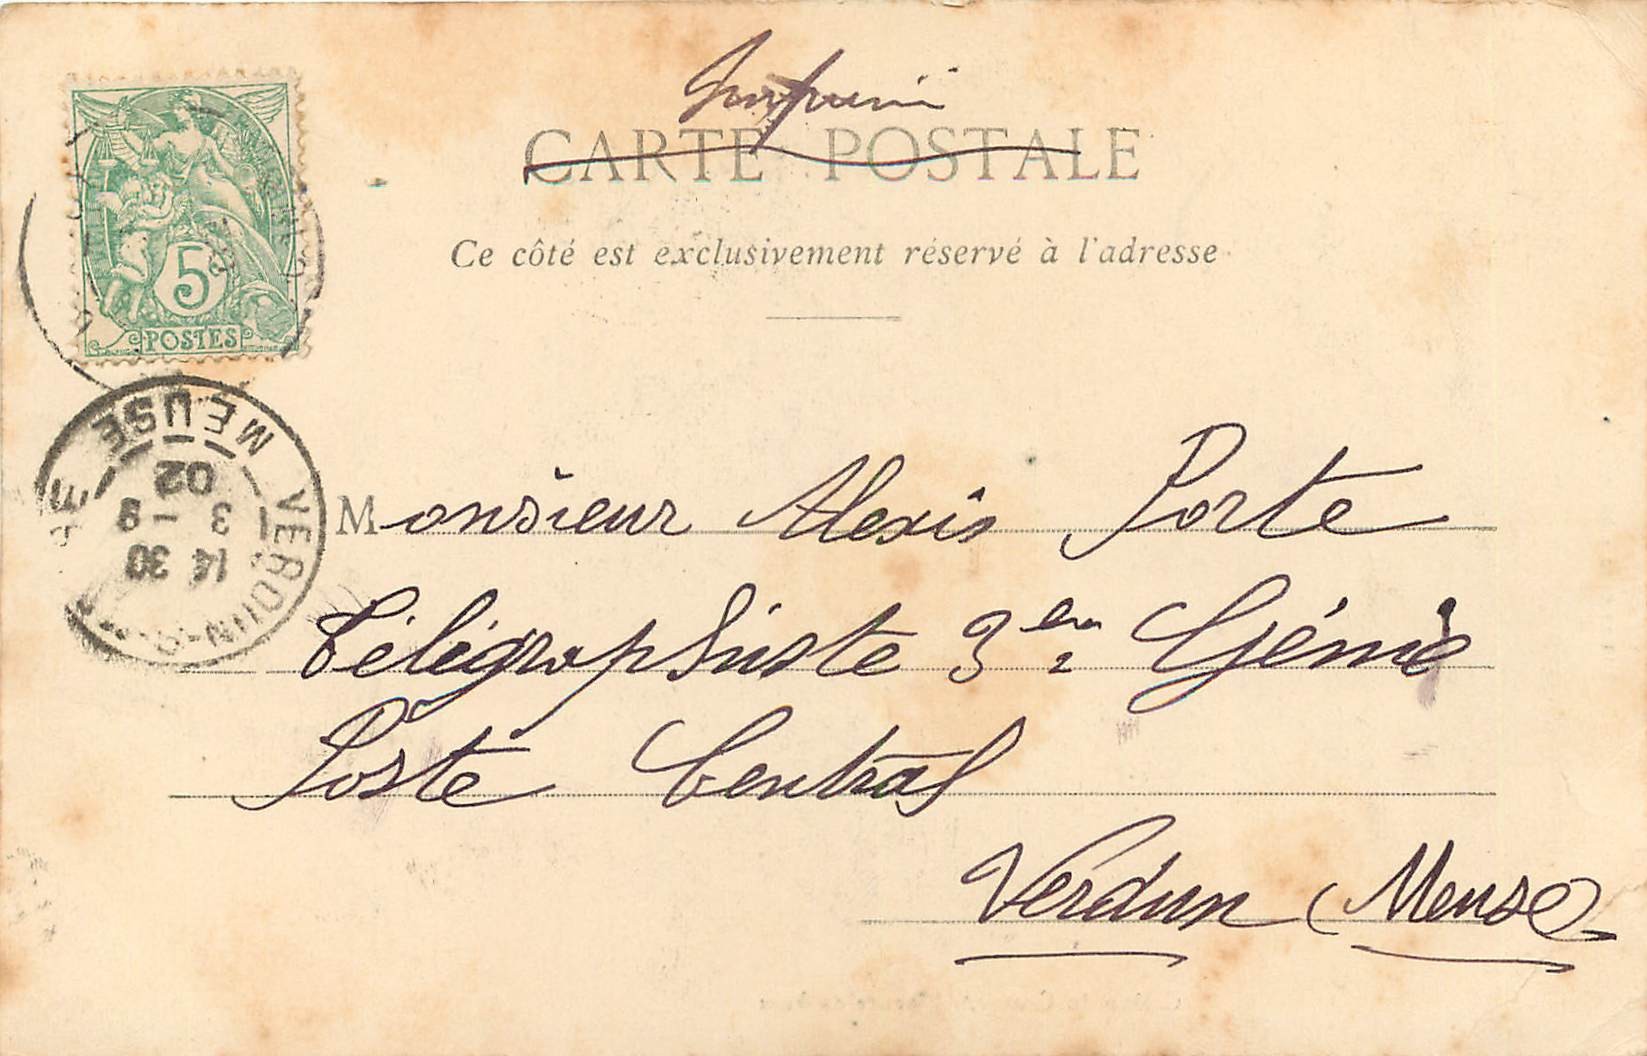 CARTE POSTALE
Ce côté est exclusivement réservé à l'adresse
5
POSTES
MEUSE
02
3 - 9
14 30
VERDUN
Monsieur Alexis Porte
Télégraphiste 3e Génie
Poste Central
Verdun (Meuse)